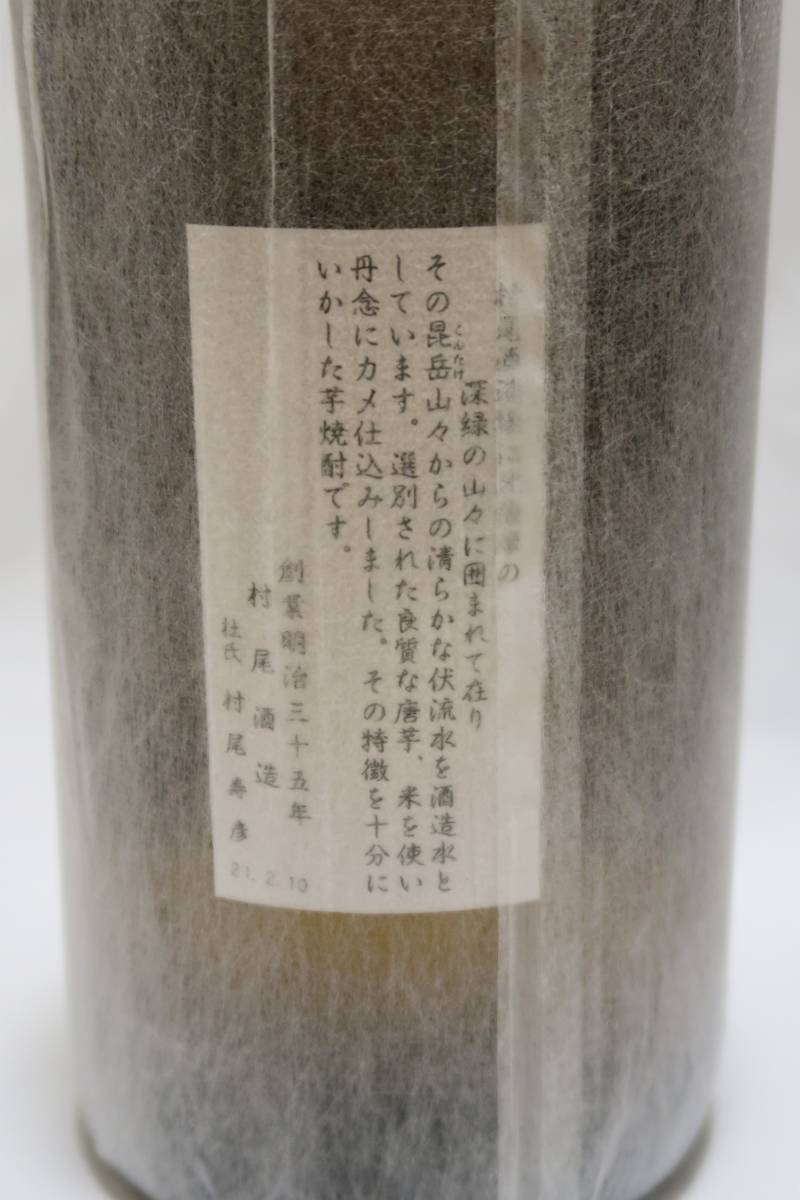 村尾酒造は の
深緑の山々に囲まれて在り
その昆岳山々からの清らかな伏流水を酒造水と
こんたけ
しています。選別された良質な唐芋、米を使い
丹念にカメ仕込みしました。その特徴を十分に
いかした芋焼酎です。
創業明治三十五年
村尾酒造
杜氏 村尾寿彦
21.2.10